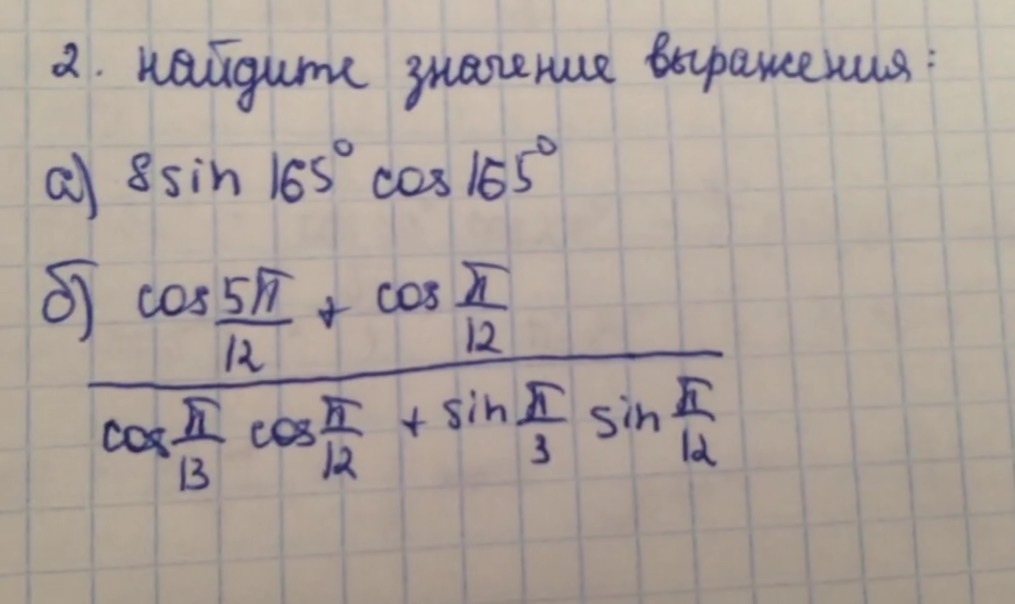 2. найдите значение выражения:
а) 8 sin 165° cos 165°
б) cos 5π/12 + cos π/12
cos π/13 cos π/12 + sin π/3 sin π/12